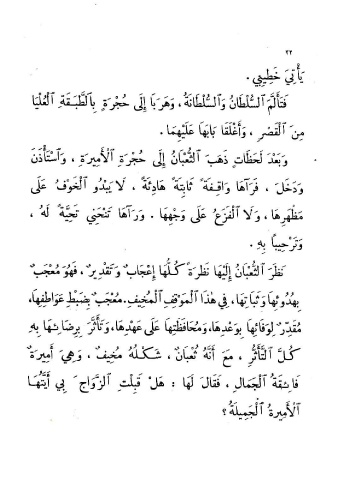 ٢٢
يَأْتِيَ خَطِيبِي .
فَتَأَلَّمَ ٱلسُّلْطَانُ وَٱلسُّلْطَانَةُ ، وَهَرَبَا إِلَى حُجْرَةٍ بِٱلطَّبَقَةِ ٱلْعُلْيَا
مِنَ ٱلْقَصْرِ ، وَأَغْلَقَا بَابَهَا عَلَيْهِمَا .
وَبَعْدَ لَحَظَاتٍ ذَهَبَ ٱلثُّعْبَانُ إِلَى حُجْرَةِ ٱلْأَمِيرَةِ ، وَٱسْتَأْذَنَ
وَدَخَلَ ، فَرَآهَا وَاقِفَةً ثَابِتَةً هَادِئَةً ، لَا يَبْدُو ٱلْخَوْفُ عَلَى
مَظْهَرِهَا ، وَلَا ٱلْفَزَعُ عَلَى وَجْهِهَا . وَرَآهَا تَنْحَنِي تَحِيَّةً لَهُ ،
وَتَرْحِيبًا بِهِ .
نَظَرَ ٱلثُّعْبَانُ إِلَيْهَا نَظْرَةً كُلُّهَا إِعْجَابٌ وَتَقْدِيرٌ ، فَهُوَ مُعْجَبٌ
بِهُدُوئِهَا وَثَبَاتِهَا ، فِي هٰذَا ٱلْمَوْقِفِ ٱلْمُخِيفِ. مُعْجَبٌ بِضَبْطِ عَوَاطِفِهَا،
مُقَدِّرٌ لِوَفَائِهَا بِوَعْدِهَا، وَمُحَافَظَتِهَا عَلَى عَهْدِهَا، وَتَأَثَّرَ بِرِضَائِهَا بِهِ
كُلَّ ٱلتَّأَثُّرِ ، مَعَ أَنَّهُ ثُعْبَانٌ ، شَكْلُهُ مُخِيفٌ ، وَهِيَ أَمِيرَةٌ
فَائِقَةُ ٱلْجَمَالِ ، فَقَالَ لَهَا : هَلْ قَبِلْتِ ٱلزَّوَاجَ بِي أَيَّتُهَا
ٱلْأَمِيرَةُ ٱلْجَمِيلَةُ ؟